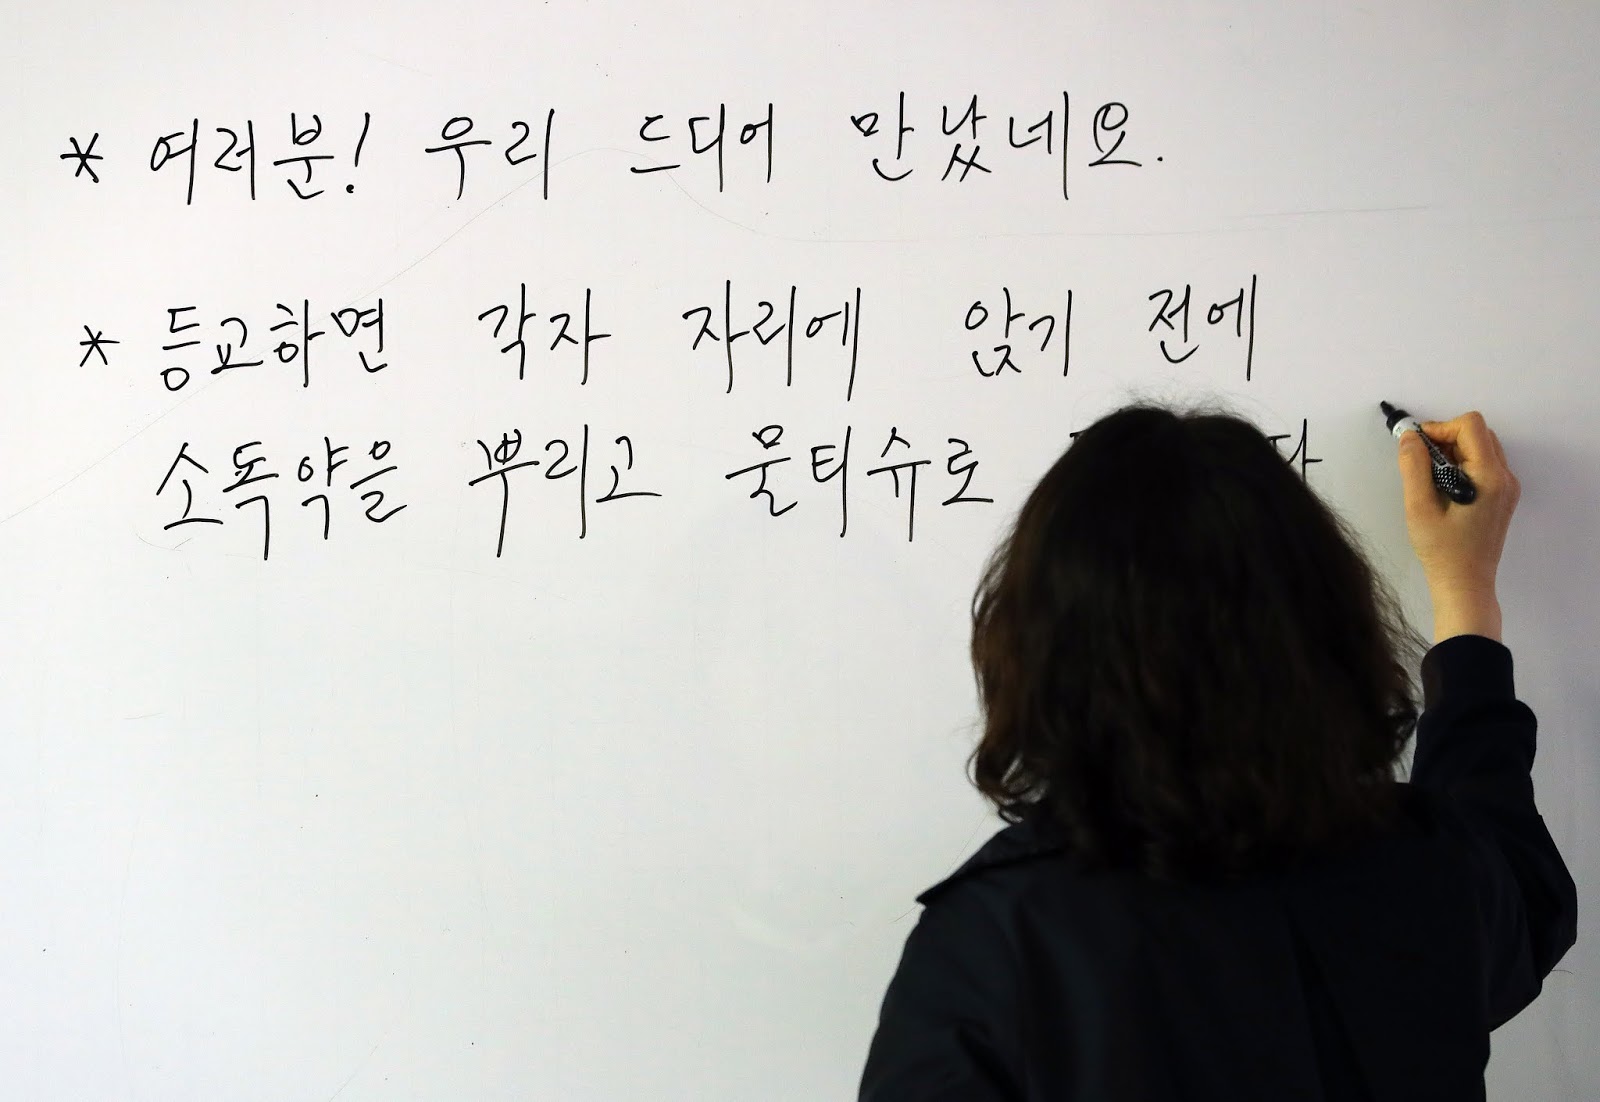 * 여러분! 우리 드디어 만났네요.
* 등교하면 각자 자리에 앉기 전에
소독약을 뿌리고 물티슈로